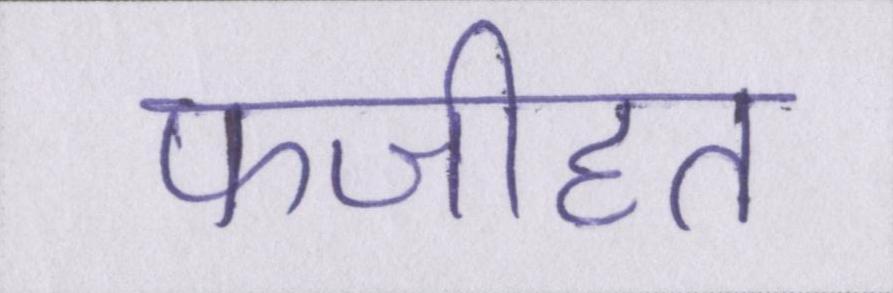 फजीहत